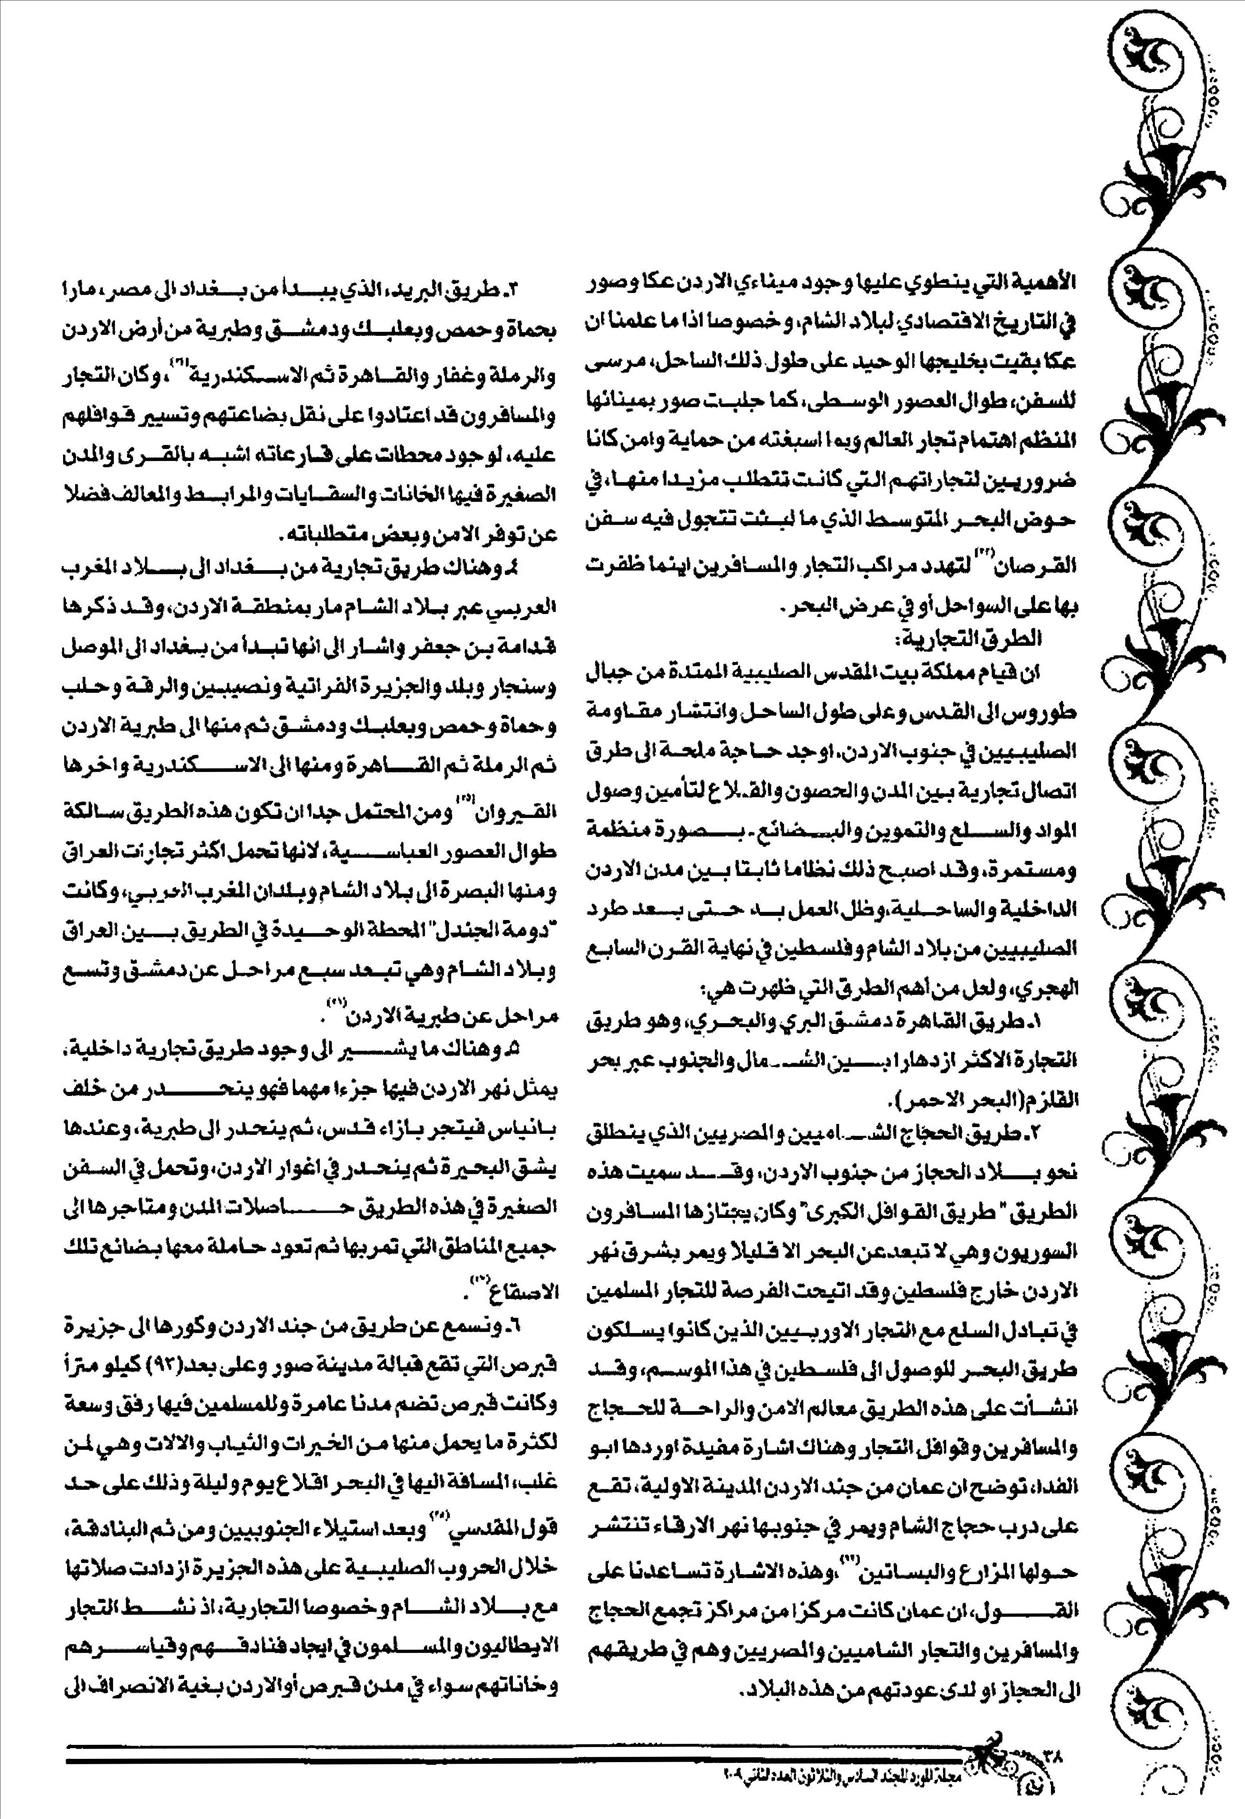 الأهمية التي ينطوي عليها وجود ميناءي الاردن عكا وصور
في التاريخ الاقتصادي لبلاد الشام، وخصوصا اذا ما علمنا ان
عكا بقيت بخليجها الوحيد على طول ذلك الساحل، مرسى
للسفن، طوال العصور الوسطى، كما جلبت صور بمينائها
المنظم اهتمام تجار العالم وبما اسبغته من حماية وامن كانا
ضروريين لتجاراتهم التي كانت تتطلب مزيدا منها، في
حوض البحر المتوسط الذي ما لبثت تتجول فيه سفن
القرصان لتهدد مراكب التجار والمسافرين اينما ظفرت
بها على السواحل أو في عرض البحر.
الطرق التجارية:
ان قيام مملكة بيت المقدس الصليبية الممتدة من جبال
طوروس الى القدس وعلى طول الساحل وانتشار مقاومة
الصليبيين في جنوب الاردن، اوجد حاجة ملحة الى طرق
اتصال تجارية بين المدن والحصون والقلاع لتأمين وصول
المواد والسلع والتموين والبضائع. بصورة منظمة
ومستمرة، وقد اصبح ذلك نظاما ثابتا بين مدن الاردن
الداخلية والساحلية، وظل العمل به حتى بعد طرد
الصليبيين من بلاد الشام وفلسطين في نهاية القرن السابع
الهجري، ولعل من أهم الطرق التي ظهرت هي:
١. طريق القاهرة دمشق البري والبحري، وهو طريق
التجارة الاكثر ازدهارا بين الشمال والجنوب عبر بحر
القلزم (البحر الاحمر).
٢. طريق الحجاج الشاميين والمصريين الذي ينطلق
نحو بلاد الحجاز من جنوب الاردن، وقد سميت هذه
الطريق "طريق القوافل الكبرى" وكان يجتازها المسافرون
السوريون وهي لا تبعد عن البحر الا قليلا ويمر بشرق نهر
الاردن خارج فلسطين وقد اتيحت الفرصة للتجار المسلمين
في تبادل السلع مع التجار الاوربيين الذين كانوا يسلكون
طريق البحر للوصول الى فلسطين في هذا الموسم، وقد
انشأت على هذه الطريق معالم الامن والراحة للحجاج
والمسافرين وقوافل التجار وهناك اشارة مفيدة اوردها ابو
الفدا، توضح ان عمان من جند الاردن المدينة الاولية، تقع
على درب حجاج الشام ويمر في جنوبها نهر الارقاء تنتشر
حولها المزارع والبساتين، وهذه الاشارة تساعدنا على
القول، ان عمان كانت مركزا من مراكز تجمع الحجاج
والمسافرين والتجار الشاميين والمصريين وهم في طريقهم
الى الحجاز او لدى عودتهم من هذه البلاد.
٣. طريق البريد، الذي يبدأ من بغداد الى مصر، مارا
بحماة وحمص وبعلبك ودمشق وطبرية من أرض الاردن
والرملة وغفار والقاهرة ثم الاسكندرية، وكان التجار
والمسافرون قد اعتادوا على نقل بضاعتهم وتسيير قوافلهم
عليه، لوجود محطات على قارعاته اشبه بالقرى والمدن
الصغيرة فيها الخانات والسقايات والمرابط والمعالف فضلا
عن توفر الامن وبعض متطلباته.
٤. وهناك طريق تجارية من بغداد الى بلاد المغرب
العربي عبر بلاد الشام مار بمنطقة الاردن، وقد ذكرها
قدامة بن جعفر واشار الى انها تبدأ من بغداد الى الموصل
وسنجار وبلد والجزيرة الفراتية ونصيبين والرقة وحلب
وحماة وحمص وبعلبك ودمشق ثم منها الى طبرية الاردن
ثم الرملة ثم القاهرة ومنها الى الاسكندرية واخرها
القيروان(٢٥) ومن المحتمل جدا ان تكون هذه الطريق سالكة
طوال العصور العباسية، لانها تحمل اكثر تجارات العراق
ومنها البصرة الى بلاد الشام وبلدان المغرب العربي، وكانت
"دومة الجندل" المحطة الوحيدة في الطريق بين العراق
وبلاد الشام وهي تبعد سبع مراحل عن دمشق وتسع
مراحل عن طبرية الاردن.
٥. وهناك ما يشير الى وجود طريق تجارية داخلية،
يمثل نهر الاردن فيها جزءا مهما فهو ينحدر من خلف
بانياس فيتجر بازاء قدس، ثم ينحدر الى طبرية، وعندها
يشق البحيرة ثم ينحدر في اغوار الاردن، وتحمل في السفن
الصغيرة في هذه الطريق حاصلات المدن ومتاجرها الى
جميع المناطق التي تمر بها ثم تعود حاملة معها بضائع تلك
الاصقاع.
٦. ونسمع عن طريق من جند الاردن وكورها الى جزيرة
قبرص التي تقع قبالة مدينة صور وعلى بعد (٩٢) كيلو متراً
وكانت قبرص تضم مدنا عامرة وللمسلمين فيها رفق وسعة
لكثرة ما يحمل منها من الخيرات والثياب والالات وهي لمن
غلب، المسافة اليها في البحر اقلاع يوم وليلة وذلك على حد
قول المقدسي وبعد استيلاء الجنوبيين ومن ثم البنادقة،
خلال الحروب الصليبية على هذه الجزيرة ازدادت صلاتها
مع بلاد الشام وخصوصا التجارية، اذ نشط التجار
الايطاليون والمسلمون في ايجاد فنادقهم وقياسرهم
وخاناتهم سواء في مدن قبرص أو الاردن بغية الانصراف الى
٣٨
مجلة المورد المجلد السادس والثلاثون العدد الثاني ٢٠٠٩